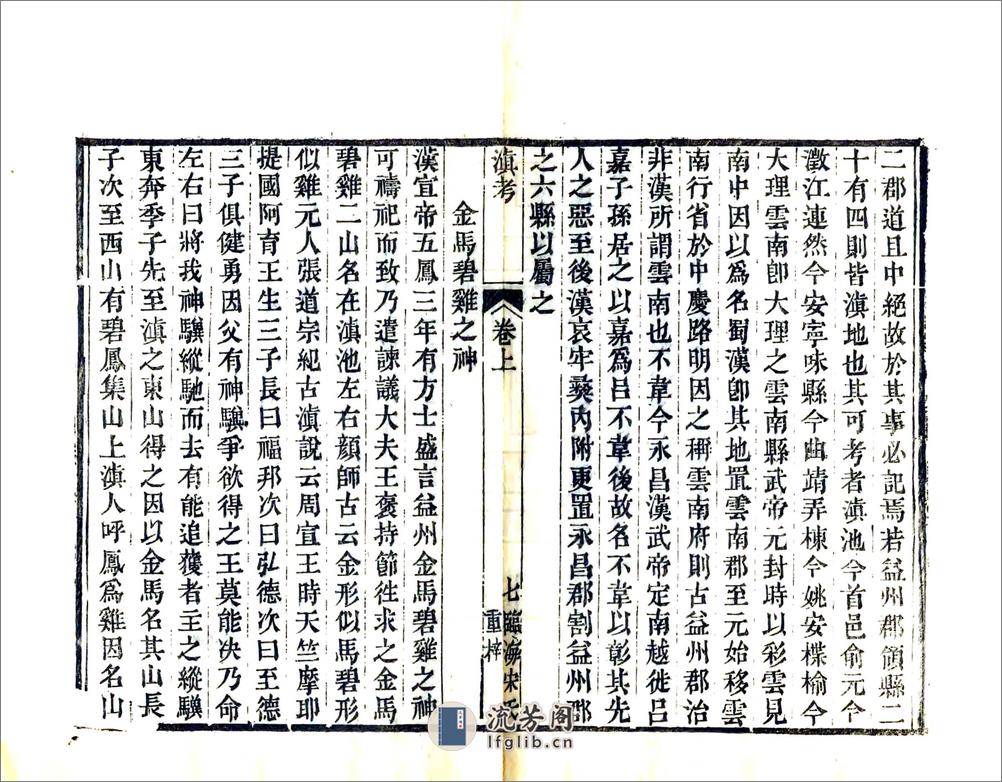 二郡道且中絕故於其事必記焉若益州郡領縣二
十有四則皆滇地也其可考者滇池今首邑俞元今
澂江連然今安寧味縣今曲靖弄棟今姚安楪榆今
大理雲南卽大理之雲南縣武帝元封時以彩雲見
南中因以爲名蜀漢卽其地置雲南郡至元始移雲
南行省於中慶路明因之稱雲南府則古益州郡治
非漢所謂雲南也不韋今永昌漢武帝定南越徙呂
嘉子孫居之以嘉爲呂不韋後故名不韋以彰其先
人之惡至後漢哀牢蠻內附更置永昌郡割益州郡
之六縣以屬之
滇考
卷上
七
臨海宋氏
重梓
金馬碧雞之神
漢宣帝五鳳三年有方士盛言益州金馬碧雞之神
可禱祀而致乃遣諫議大夫王褒持節徃求之金馬
碧雞二山名在滇池左右顔師古云金形似馬碧形
似雞元人張道宗紀古滇說云周宣王時天竺摩耶
提國阿育王生三子長曰福邦次曰弘德次曰至德
三子俱健勇因父有神驥爭欲得之王莫能决乃命
左右曰將我神驥縱馳而去有能追獲者主之縱驥
東奔季子先至滇之東山得之因以金馬名其山長
子次至西山有碧鳳集山上滇人呼鳳爲雞因名山
流芳閣
lfglib.cn